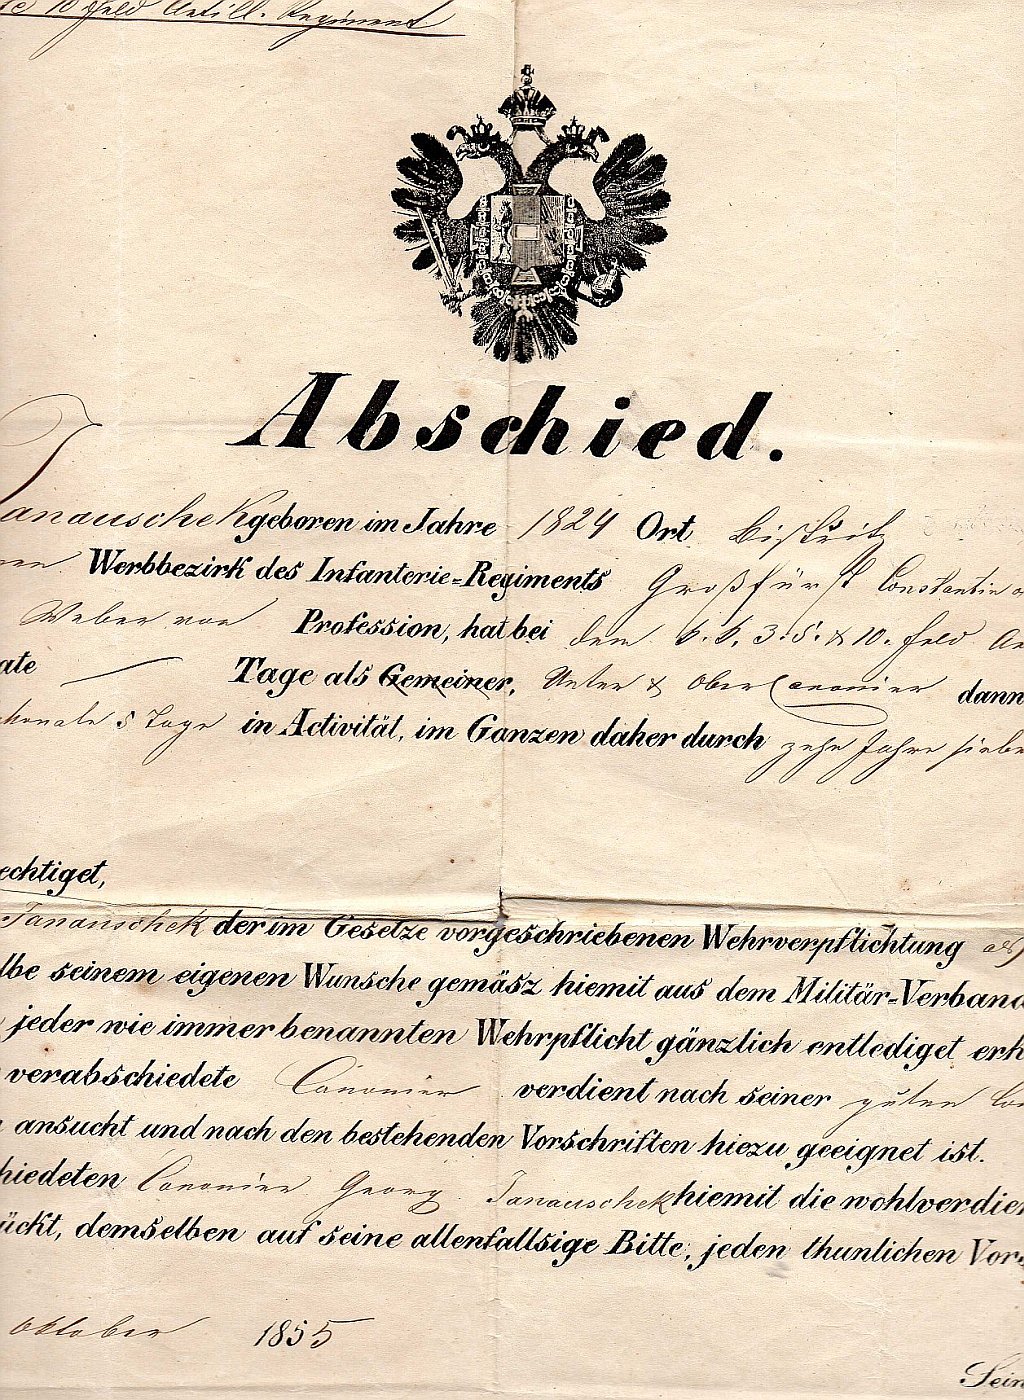 10 Feld Artill. Regiment
Abschied.
Janauschek geboren im Jahre 1824 Ort Bistritz
Werbbezirk des Infanterie=Regiments Großfürst Constantin
Weber von Profession, hat bei dem k. k. 3. 5. & 10. Feld
ate — Tage als Gemeiner, Unter & Ober Canonier dann
Monate 5 Tage in Activität, im Ganzen daher durch zehn Jahre siebe
echtiget,
Janauschek der im Gesetze vorgeschriebenen Wehrverpflichtung als
lbe seinem eigenen Wunsche gemäsz hiemit aus dem Militär=Verband
jeder wie immer benannten Wehrpflicht gänzlich entlediget erk
verabschiedete Canonier verdient nach seiner guten
ansucht und nach den bestehenden Vorschriften hiezu geeignet ist.
hiedeten Canonier Georg Janauschek hiemit die wohlverdien
ückt, demselben auf seine allenfallsige Bitte, jeden thunlichen Vors
Oktober 1855
Sein